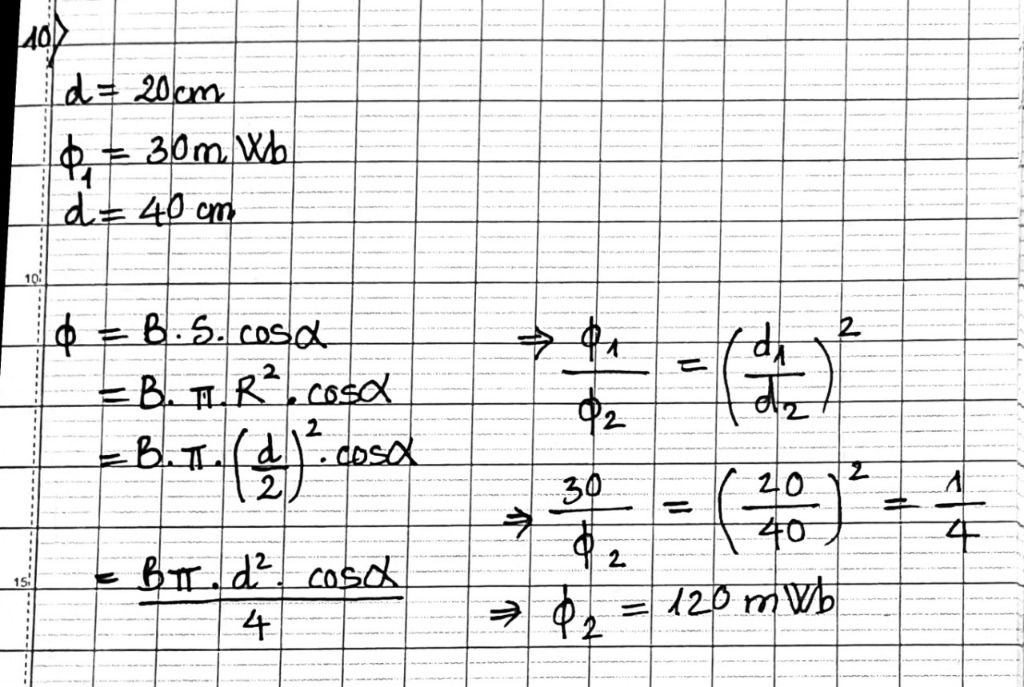 10)
d = 20 cm
ϕ₁ = 30 m Wb
d = 40 cm
10
ϕ = B . S . cosα
= B . π . R² . cosα
= B . π . (d/2)² . cosα
15
= Bπ . d² . cosα / 4
⇒ ϕ₁/ϕ₂ = (d₁/d₂)²
⇒ 30/ϕ₂ = (20/40)² = 1/4
⇒ ϕ₂ = 120 m Wb